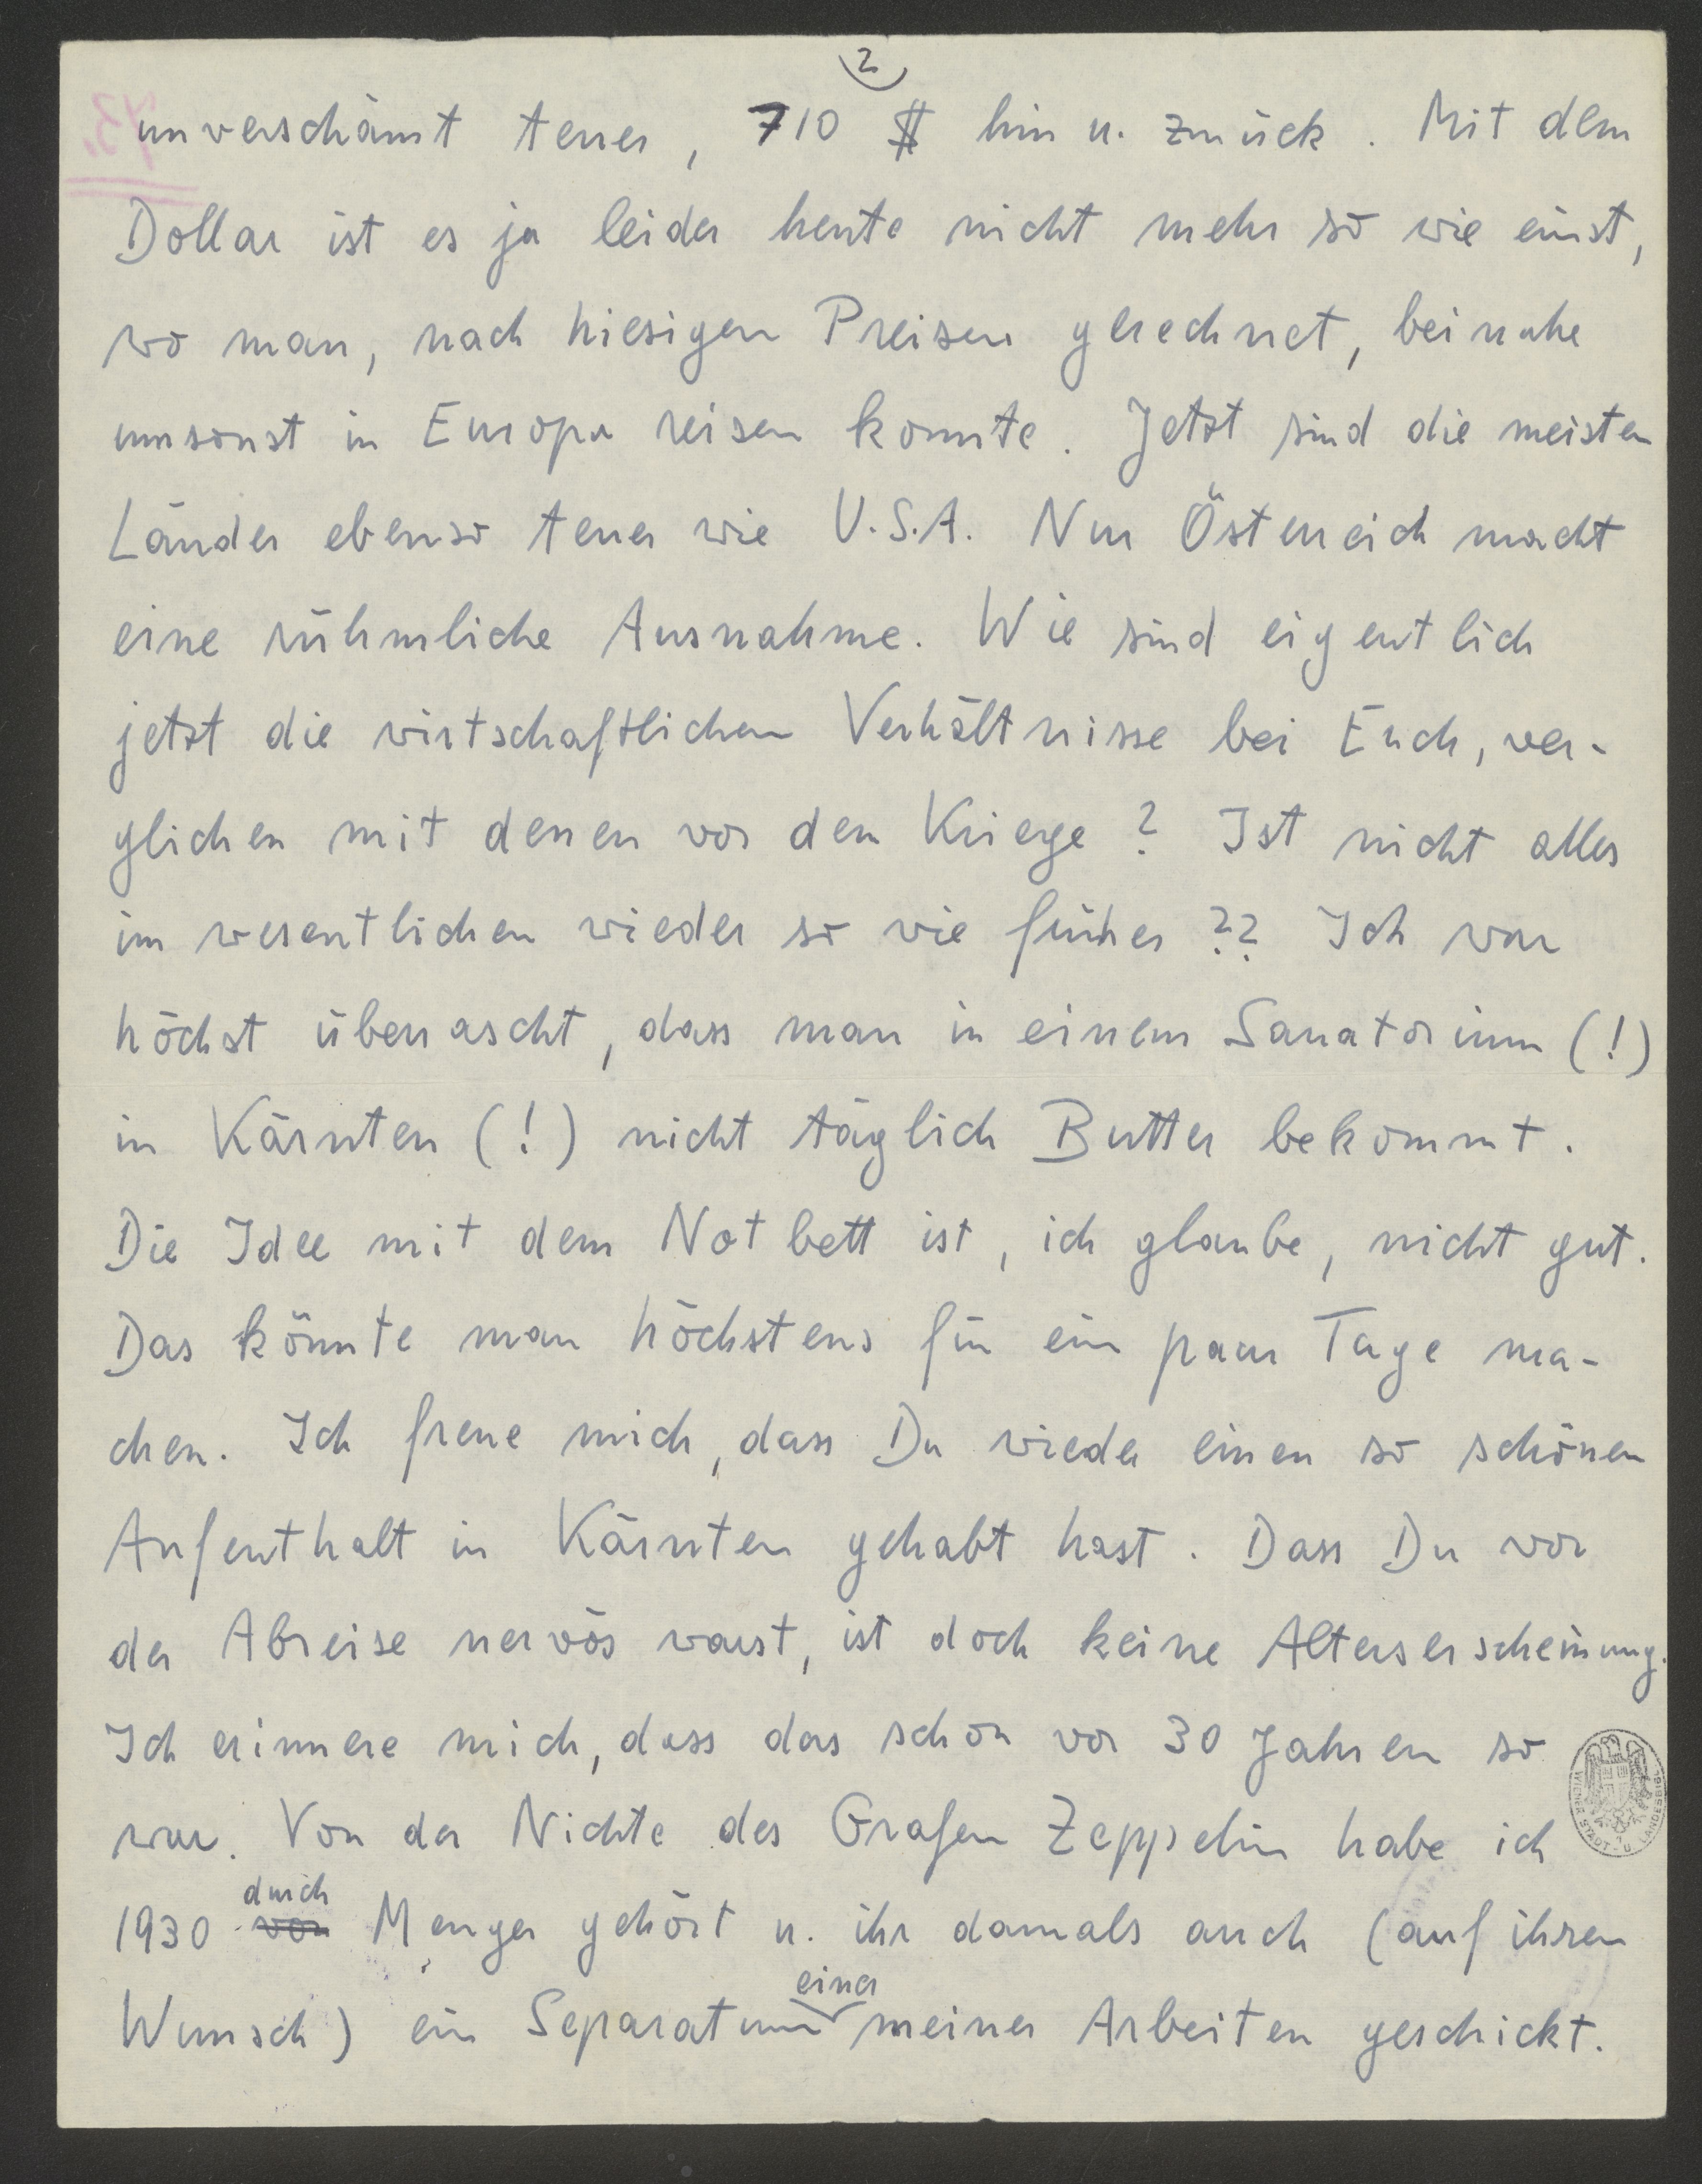 2
unverschämt teuer, 710 $ hin u. zurück. Mit dem
Dollar ist es ja leider heute nicht mehr so wie einst,
wo man, nach hiesigen Preisen gerechnet, beinahe
umsonst in Europa reisen konnte. Jetzt sind die meisten
Länder ebenso teuer wie U.S.A. Nur Österreich macht
eine rühmliche Ausnahme. Wie sind eigentlich
jetzt die wirtschaftlichen Verhältnisse bei Euch, ver-
glichen mit denen vor dem Kriege? Ist nicht alles
im wesentlichen wieder so wie früher?? Ich war
höchst überrascht, dass man in einem Sanatorium (!)
in Kärnten (!) nicht täglich Butter bekommt.
Die Idee mit dem Notbett ist, ich glaube, nicht gut.
Das könnte man höchstens für ein paar Tage ma-
chen. Ich freue mich, dass Du wieder einen so schönen
Aufenthalt in Kärnten gehabt hast. Dass Du vor
der Abreise nervös warst, ist doch keine Alterserscheinung.
Ich erinnere mich, dass das schon vor 30 Jahren so
war. Von der Nichte des Grafen Zeppelin habe ich
durch
1930 von Menger gehört u. ihr damals auch (auf ihren
einer
Wunsch) ein Separatum meiner Arbeiten geschickt.
WIENER STADT- U. LANDESBIBL.